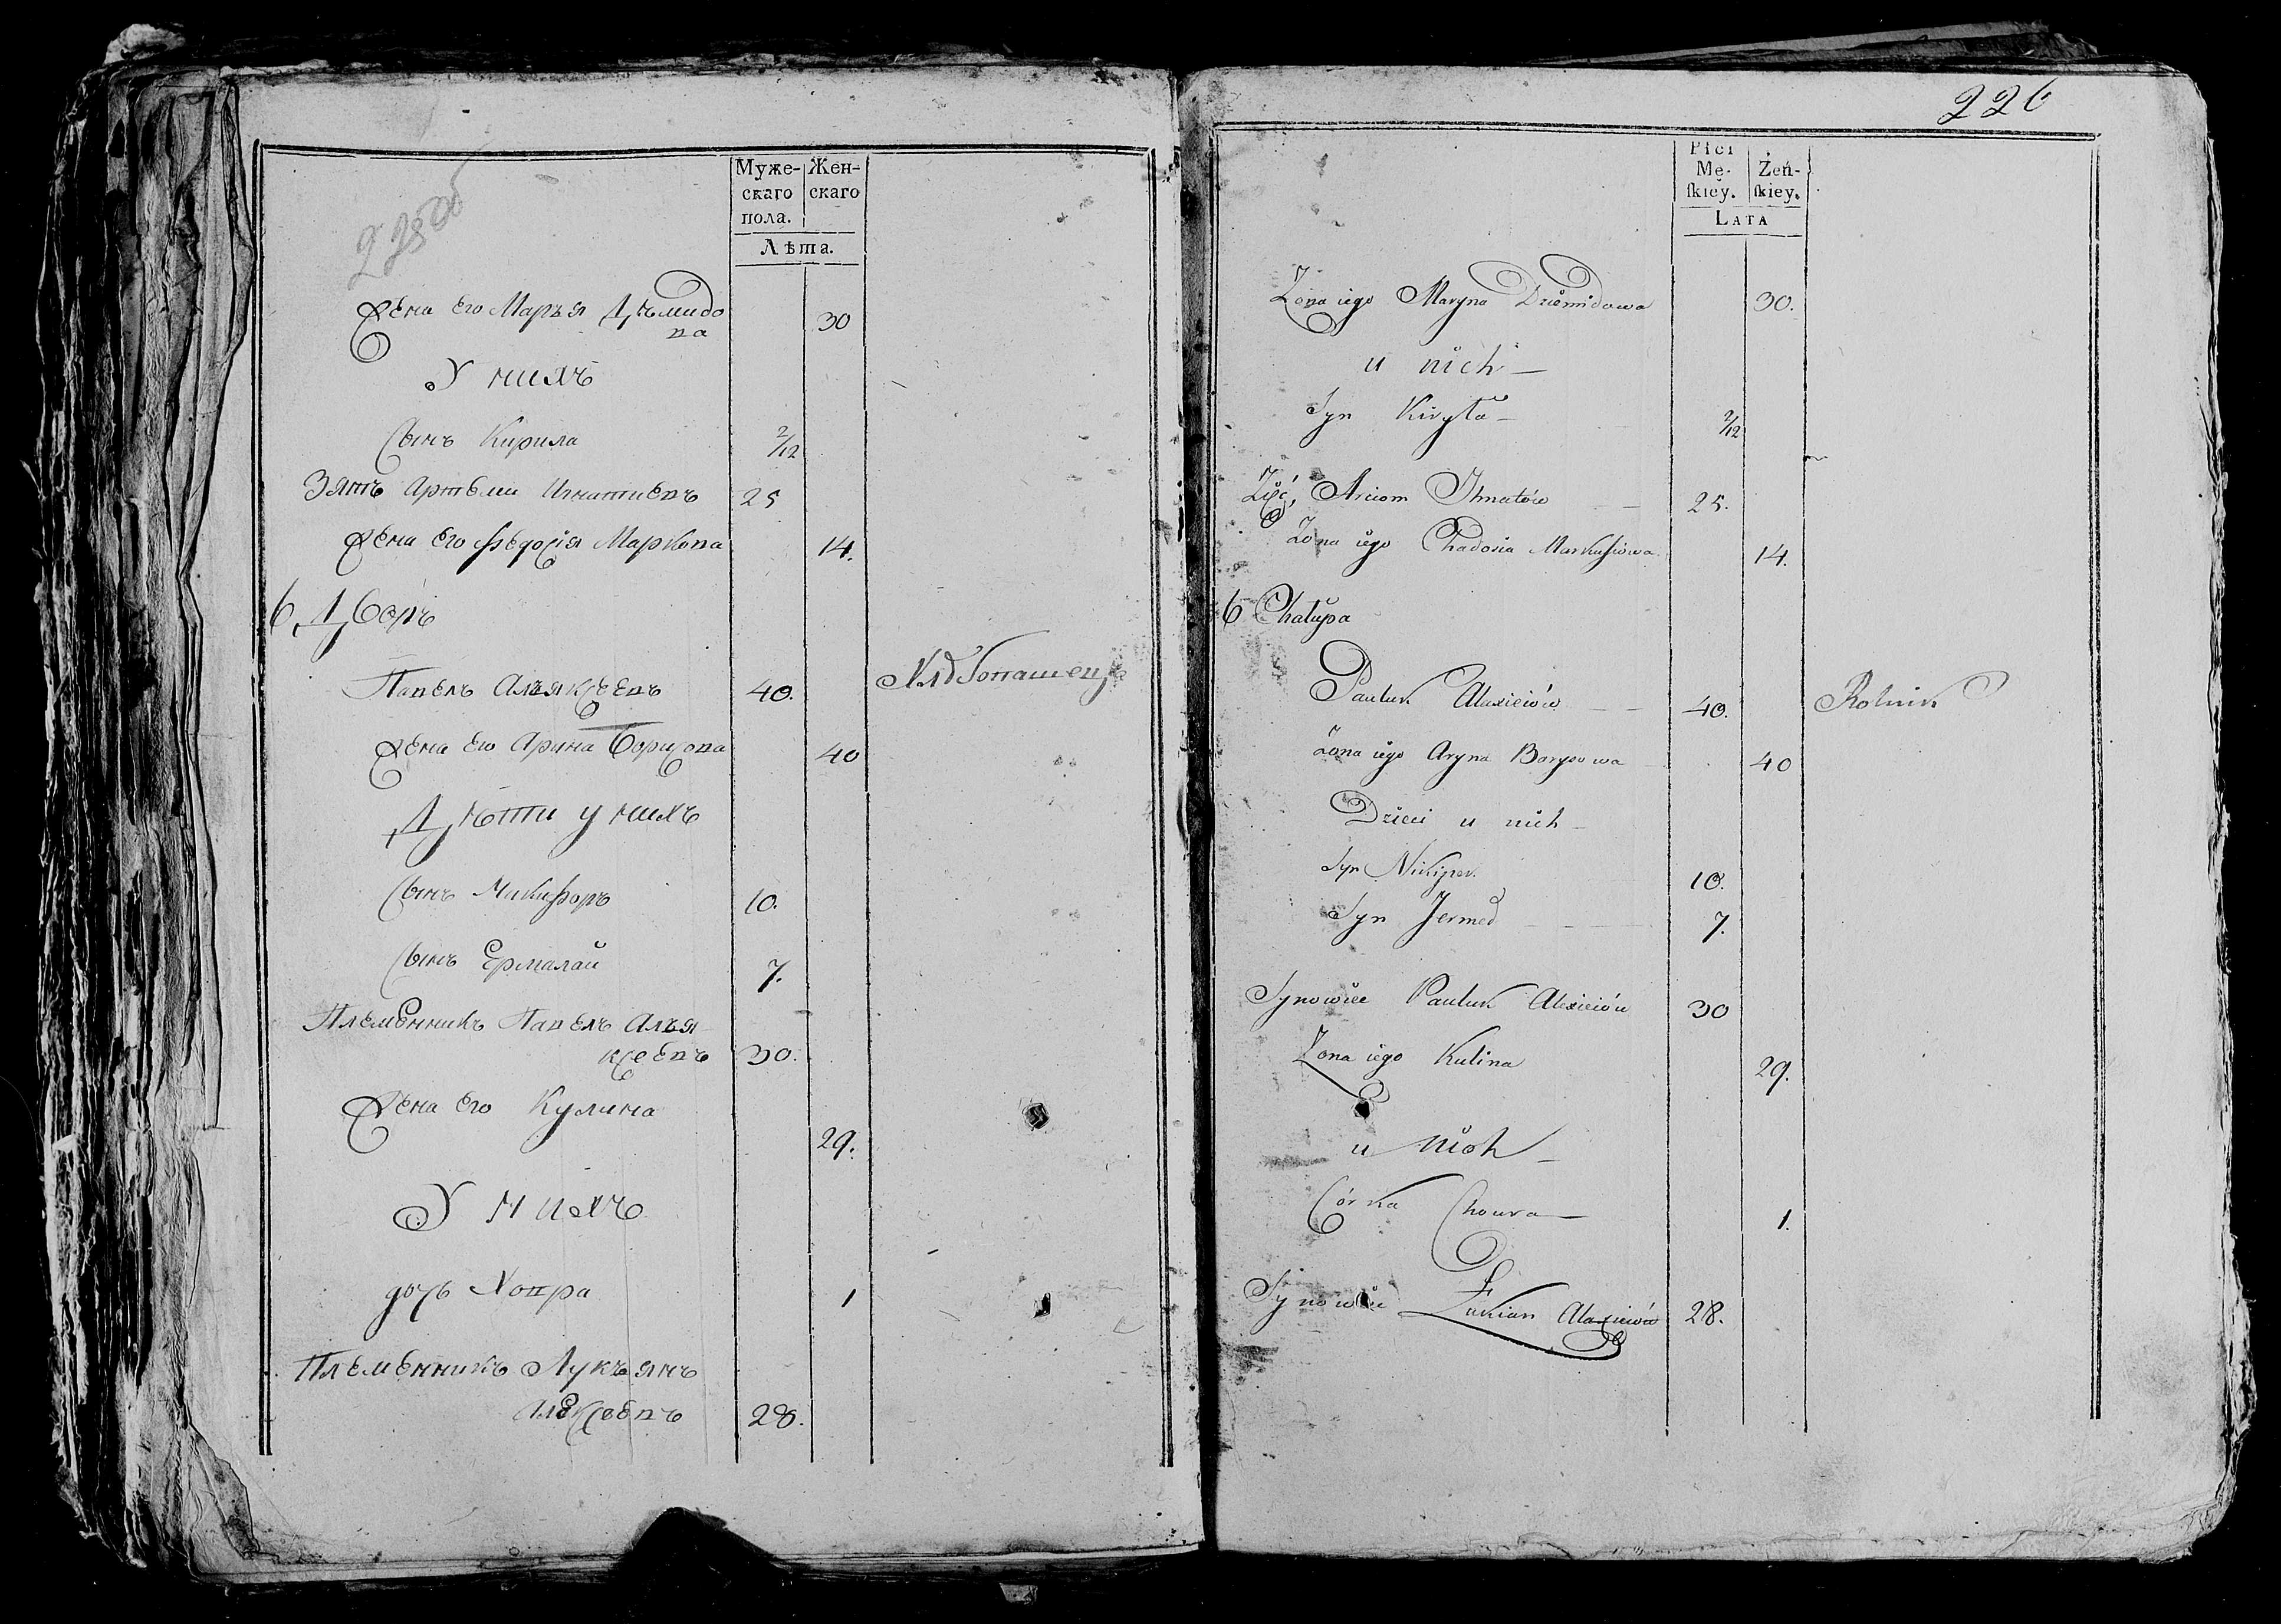 225об
Муже-
скаго
пола.
Жен-
скаго
Лѣта.
Жена его Марья Дѣмидо
ва
30
У нихъ
Сынъ Кирила
2/12
Зять Артѣми Игнатиевъ
25
Жена его Федосія Маркова
14.
6, Дворъ
Павелъ Алѣяксѣевъ
40.
Хлѣбопашецъ
Жена его Арина Борисова
40
Дѣти у нихъ
Сынъ Микифоръ
10.
Сынъ Ермалай
7.
Племенникъ Павелъ Алѣя
ксеевъ
30.
Жена его Кулина
29.
У нихъ
дочь Ховра
1
Племенникъ Лукъянъ
Алексеевъ
28.
226
Płci
Mę-
ſkiey.
Żeń-
ſkiey.
LATA
Zona iego Maryna Dziemidowa
30.
u nich
Syn Kiryła
2/12
Zięć, Arciom Ihnatów
25.
Zona iego Chadosia Markuſiowa
14.
6 Chałupa
Pauluk Alaxieiów
40.
Rolnik
Zona iego Aryna Borysowa
40
Dzieci u nich
Syn Nikiper
10.
Syn Jermoł
7.
Synowiec Pauluk Alexieiów
30
Zona iego Kulina
29.
u nich
Córka Chowra
1.
Synowiec Łukian Alaxieiów
28.